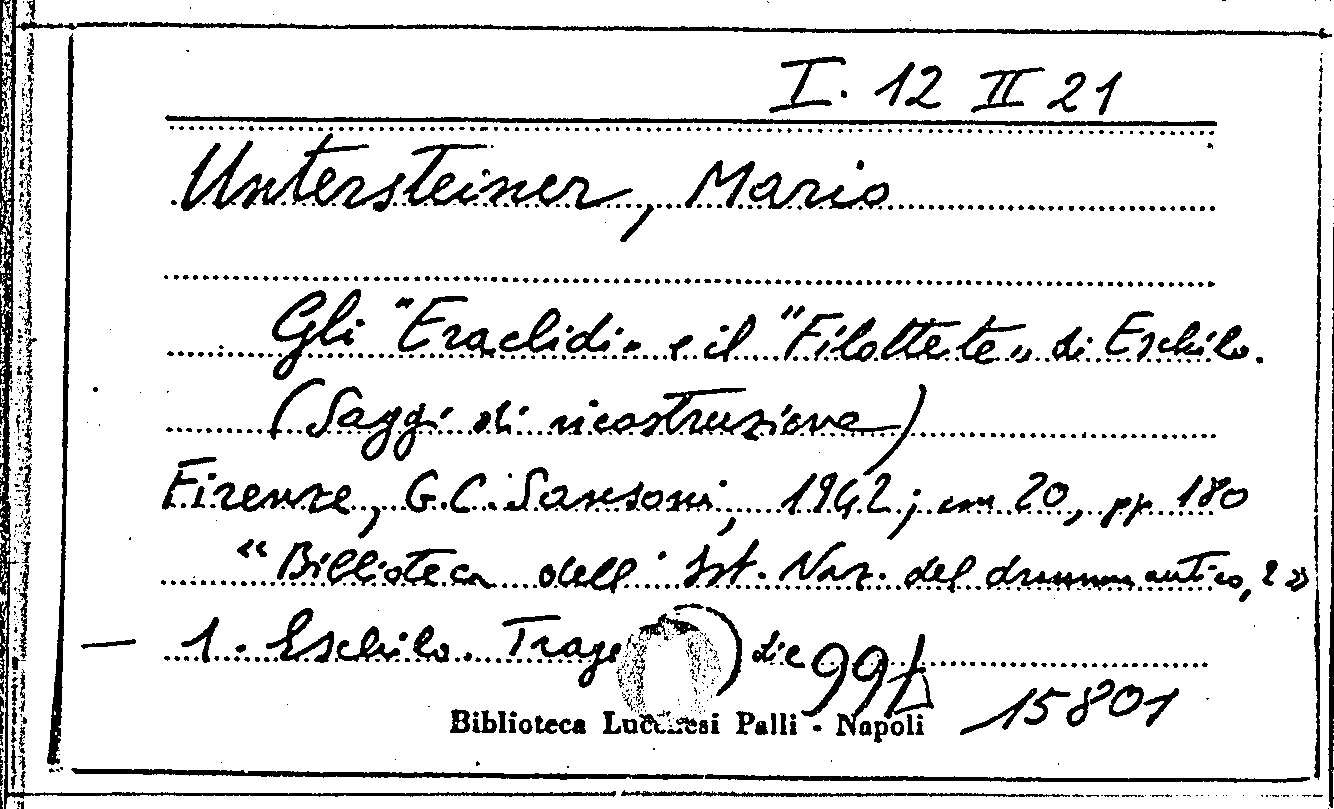 I. 12 II 21
Untersteiner, Mario
Gli "Eraclidi" e il "Filottete" di Eschilo.
(Saggi di ricostruzione)
Firenze, G.C. Sansoni, 1942; cm 20, pp. 180
"Biblioteca dell'Ist. Naz. del dramma antico, 2"
- 1. Eschilo. Trage die
15801
Biblioteca Lucchesi Palli - Napoli